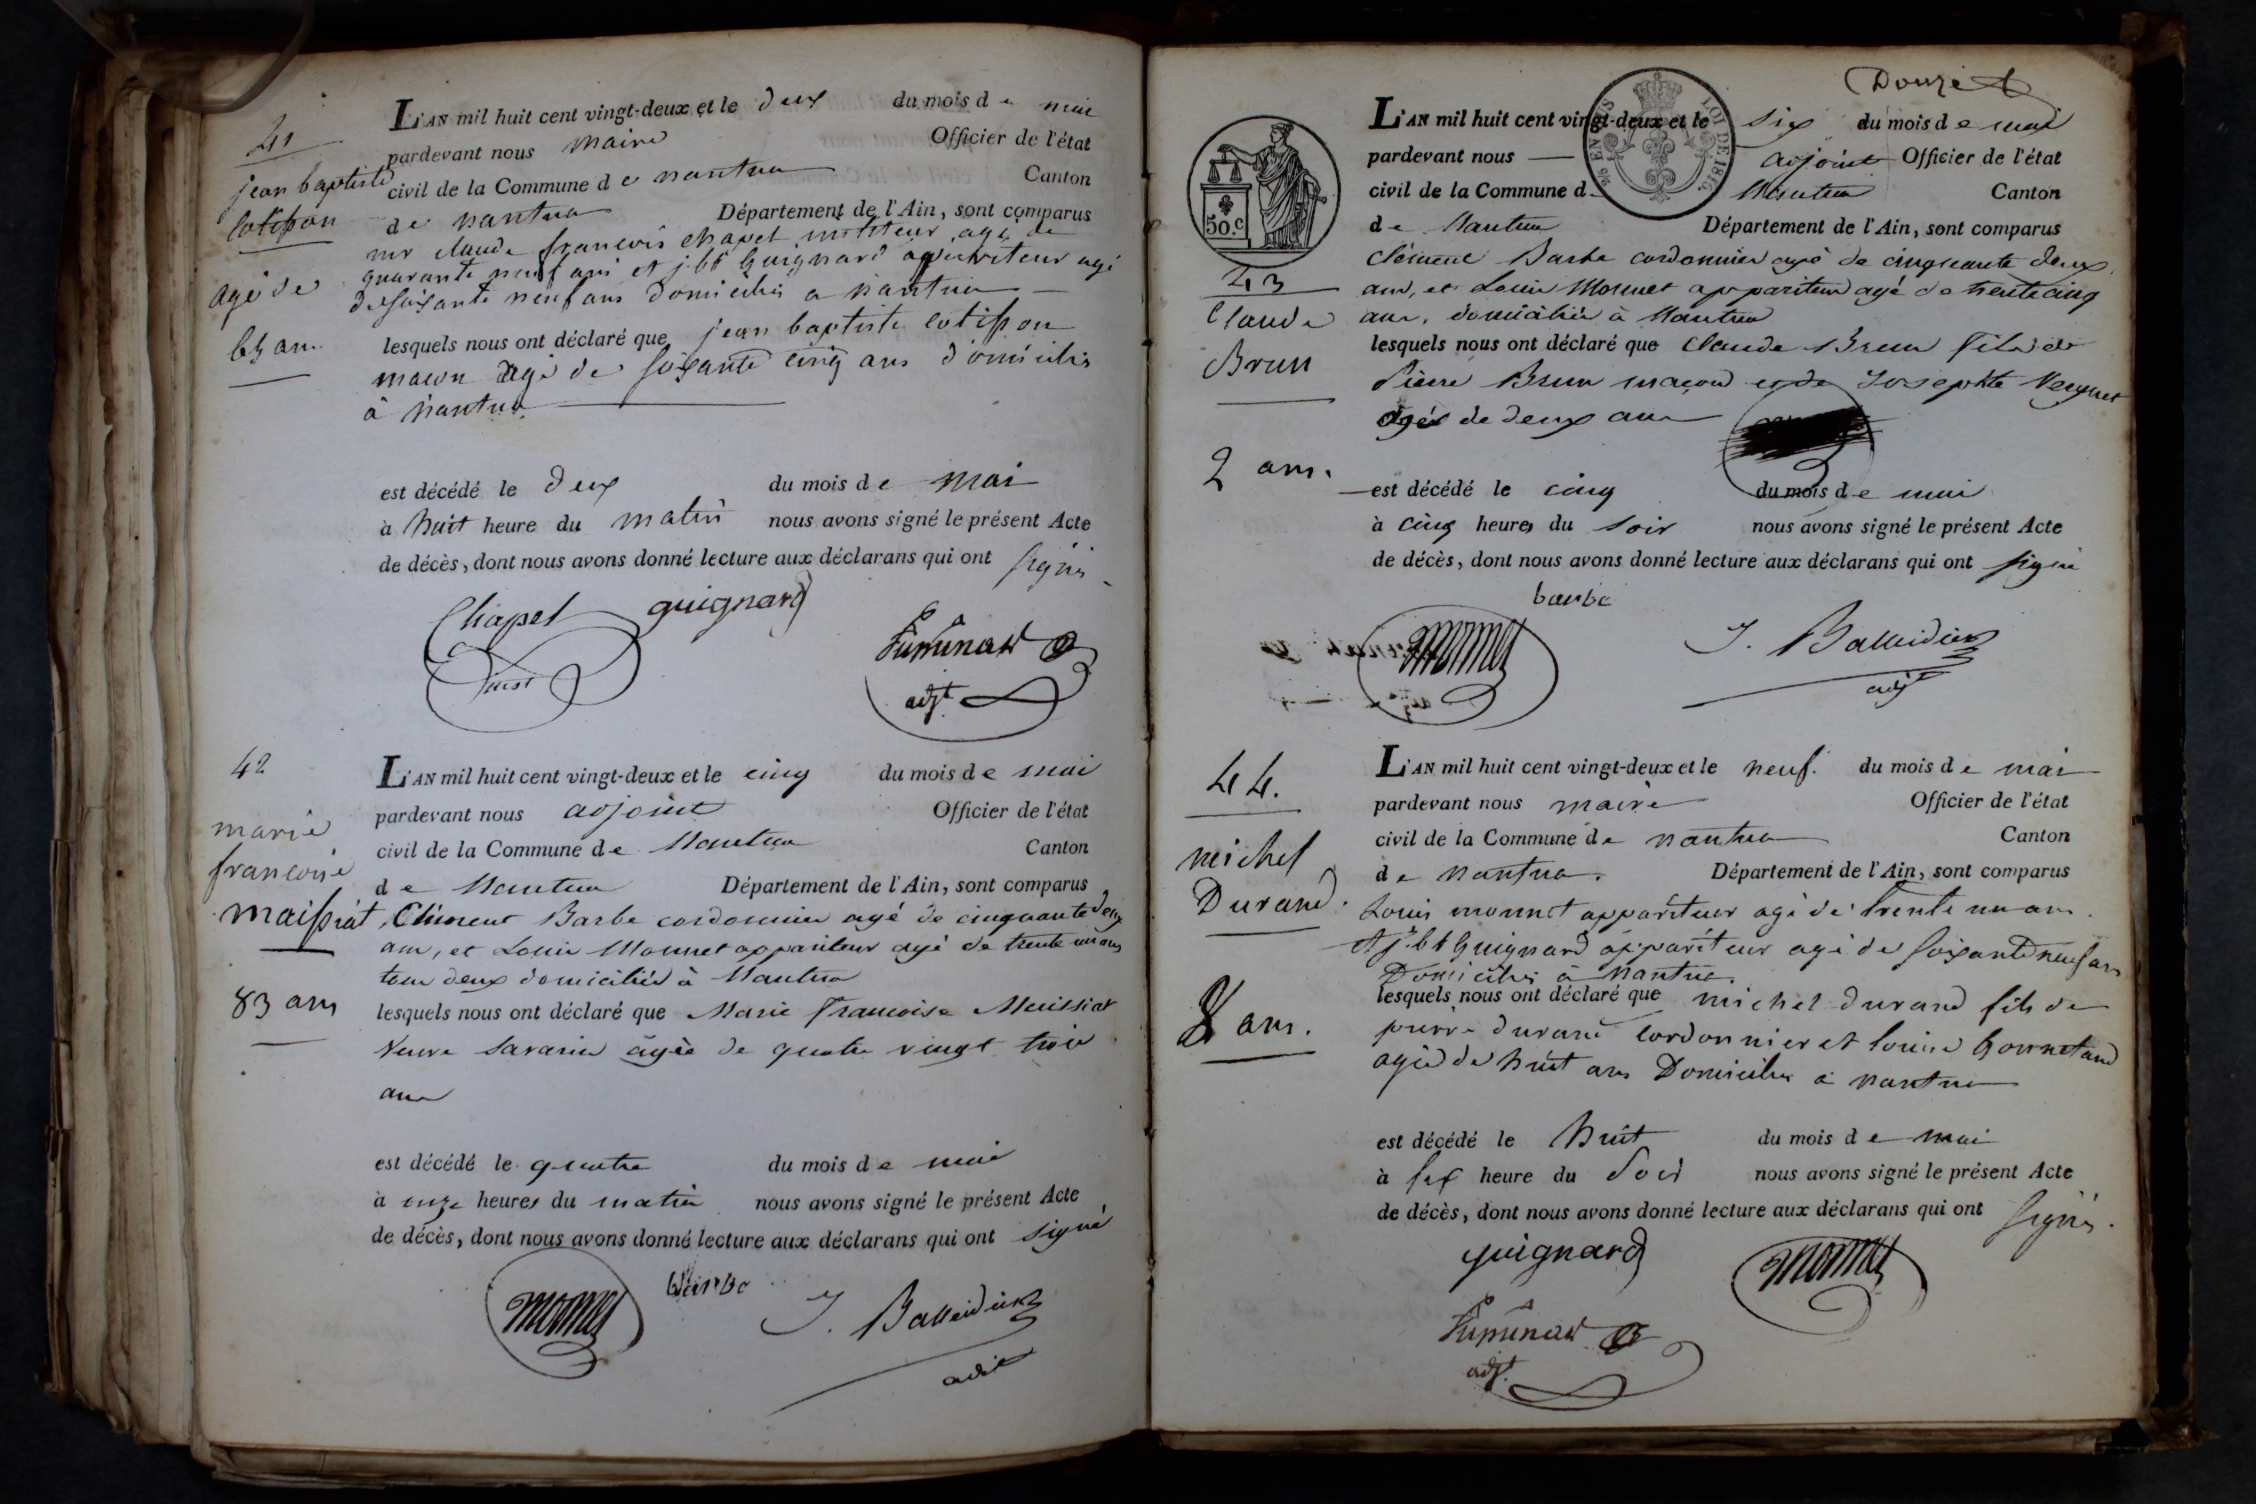 41
jean baptiste
cotisson
agé de
65 an.
L'AN mil huit cent vingt-deux et le deux du mois de mai
pardevant nous maire Officier de l'état
civil de la Commune de nantua Canton
de nantua Département de l'Ain, sont comparus
mr claude françois chapel instituteur agé de
quarante neuf ans et j. bte Guignard appariteur agé
de soixante neuf ans domiciliés a nantua
lesquels nous ont déclaré que jean baptiste cotisson
macon agé de soixante cinq ans domicilié
à nantua
est décédé le deux du mois de mai
à huit heure du matin nous avons signé le présent Acte
de décès, dont nous avons donné lecture aux déclarans qui ont signés
Chapel guignard
adjt
42
marie
françoise
maissiat
83 ans
L'AN mil huit cent vingt-deux et le cinq du mois de mai
pardevant nous adjoint Officier de l'état
civil de la Commune de Nantua Canton
de Nantua Département de l'Ain, sont comparus
Clément Barbe cordonnier agé de cinquante deux
ans, et Louis Monnet appariteur agé de trente un ans
tous deux domiciliés à Nantua
lesquels nous ont déclaré que Marie françoise Meissiat
Veuve Savarin âgée de quatre vingt trois
ans
est décédé le quatre du mois de mai
à onze heures du matin nous avons signé le présent Acte
de décès, dont nous avons donné lecture aux déclarans qui ont signé
monnet barbe J. Balleidier
adjt
Douze
50. C
26 EN SUS
LOI DE 1816.
43
Claude
Brun
2 ans.
L'AN mil huit cent vingt-deux et le six du mois de mai
pardevant nous adjoint Officier de l'état
civil de la Commune d Nantua Canton
de Nantua Département de l'Ain, sont comparus
Clément Barbe cordonnier agé de cinquante deux
ans, et Louis Monnet appariteur agé de trente cinq
ans, domiciliés à Nantua
lesquels nous ont déclaré que Claude Brun fils de
Pierre Brun maçon et de Josephte
agés de deux ans
est décédé le cinq du mois de mai
à cinq heures du soir nous avons signé le présent Acte
de décès, dont nous avons donné lecture aux déclarans qui ont signé
barbe
monnet J. Balleidier
adjt
44.
michel
Durand.
8 ans.
L'AN mil huit cent vingt-deux et le neuf. du mois de mai
pardevant nous maire Officier de l'état
civil de la Commune de nantua Canton
de nantua. Département de l'Ain, sont comparus
Louis monnet appariteur agé de trente un ans.
et j. bt Guignard appariteur agé de soixante neuf ans
Domiciliés à nantua.
lesquels nous ont déclaré que michel durand fils de
pierre durand cordonnier et louise
agé de huit ans Domicilié à nantua
est décédé le huit du mois de mai
à six heure du soir nous avons signé le présent Acte
de décès, dont nous avons donné lecture aux déclarans qui ont signés.
guignard monnet
adjt